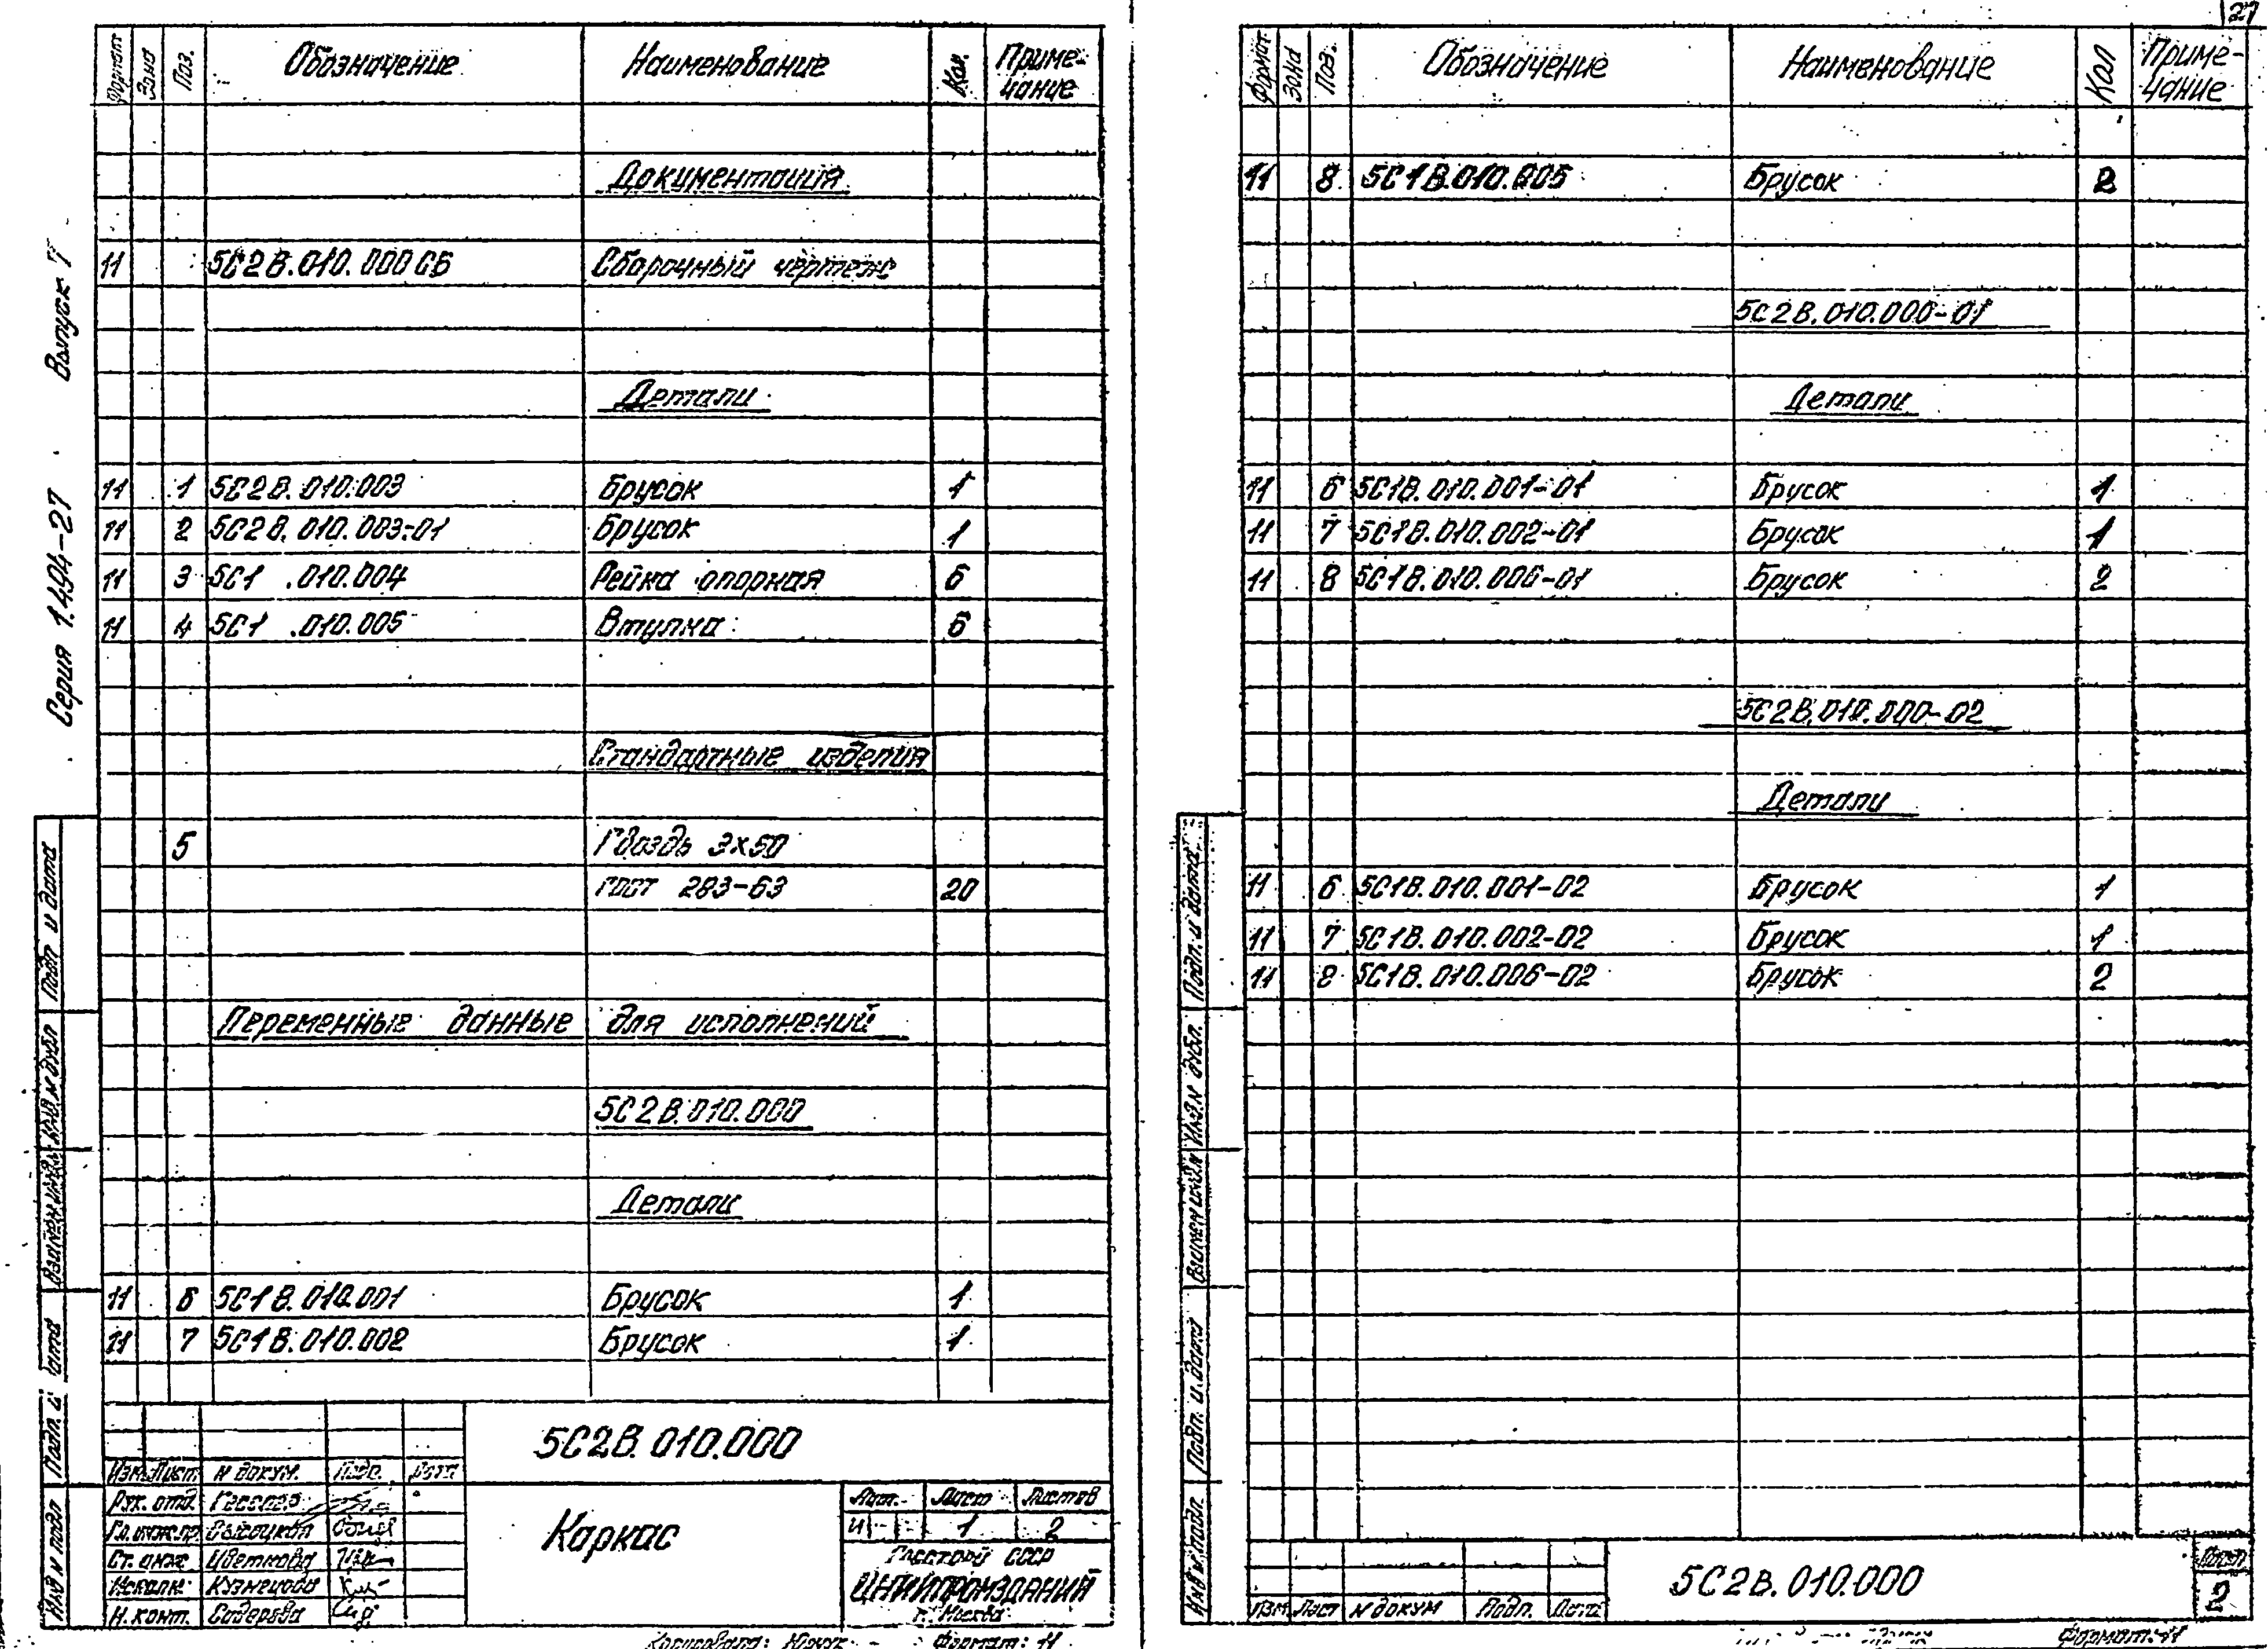 Формат Зона Поз. Обозначение Наименование Кол. Приме-
чание
Документация
11 5С2В.010.000СБ Сборочный чертеж
Детали
11 1 5С2В.010.003 Брусок 1
11 2 5С2В.010.003-01 Брусок 1
11 3 5С1 .010.004 Рейка опорная 6
11 4 5С1 .010.005 Втулка 6
Стандартные изделия
5 Гвоздь 3х50
ГОСТ 283-63 20
Переменные данные для исполнений
5С2В.010.000
Детали
11 6 5С1В.010.001 Брусок 1
11 7 5С1В.010.002 Брусок 1
Серия 1.494-27 Выпуск 7
Подп и дата
Инв.N дубл
Взамен инв.N
Подп. и дата
Инв N подл
5С2В.010.000
Изм. Лист N докум. Подп. Дата
Рук. отд.
Гл. инж.пр Высоцкая
Ст. инж. Цветкова
Исполн. Кузнецова
Н. конт. Сидерова
Каркас
Лит. Лист Листов
И 1 2
Госстрой СССР
ЦНИИПРОМЗДАНИЙ
г. Москва
Копировала: Формат: 11
27
Формат Зона Поз. Обозначение Наименование Кол Приме-
чание
11 8 5С1В.010.005 Брусок 2
5С2В.010.000-01
Детали
11 6 5С1В.010.001-01 Брусок 1
11 7 5С1В.010.002-01 Брусок 1
11 8 5С1В.010.006-01 Брусок 2
5С2В.010.000-02
Детали
11 6 5С1В.010.001-02 Брусок 1
11 7 5С1В.010.002-02 Брусок 1
11 8 5С1В.010.006-02 Брусок 2
Подп. и дата
Инв.N дубл.
Взамен инв.N
Подп. и дата
Инв N подл.
Изм. Лист N докум Подп. Дата
5С2В.010.000
Лист
2
Формат: 11